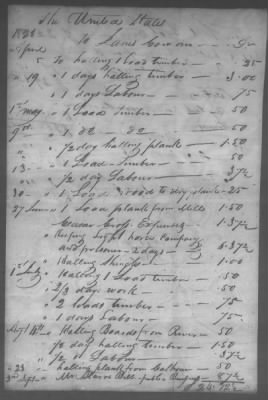 The United States
1838 To James Cowan Dr
April 5 To halling 1 Load timber 25
" 19 " 1 days halling timber 3.00
" " 1 days Labour 75
1st May " 1 Load timber 50
9th " 1 do do 50
" " ½ day halling plank 1.50
" " 1 Load timber 50
13 " ½ day Labour 37½
30 " 1 Load Wood to dry plank 25
27 June " 1 Load plank from Mills 1.50
" Expenses 1.37½
" 1 horse
and 2 days 6.37½
" halling Shingles 1.00
1st July " halling 1 Load timber 50
" 2/3 days work 50
" 2 loads timber 75
" 1 days Labour 75
Augt " Halling Boards from River 50
" ½ day halling timber 1.50
" ½ " Labour 37½
" 23 " halling plank from Calhoun 50
Sept 87½
24.72½